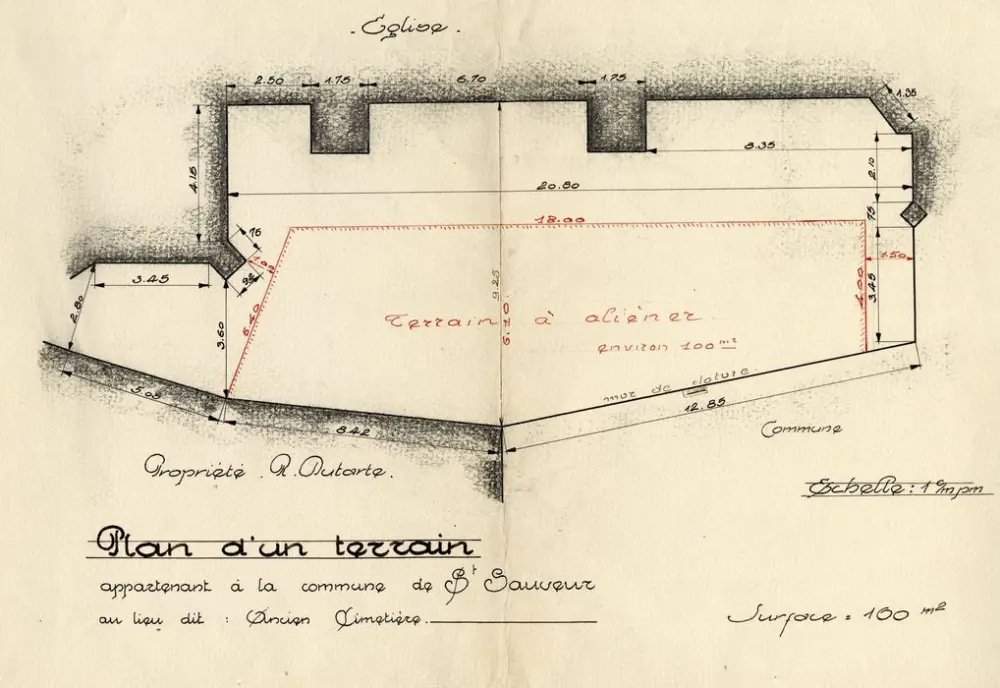 . Eglise .
2.50 1.75 6.70 1.75 1.35
4.15
8.35
2.10
20.80
18.00
75
75
1.00
1.50
3.45
2.80
9.25
6.40
4.00
3.45
3.60
6.20
Terrain à aliéner
environ 100 m2
mur de cloture
5.05
8.42
12.85
Commune
Propriété . R. Dutarte.
Echelle : 1 c/m p m
Plan d'un terrain
appartenant à la commune de St Sauveur
au lieu dit : Ancien Cimetière.
Surface = 160 m2